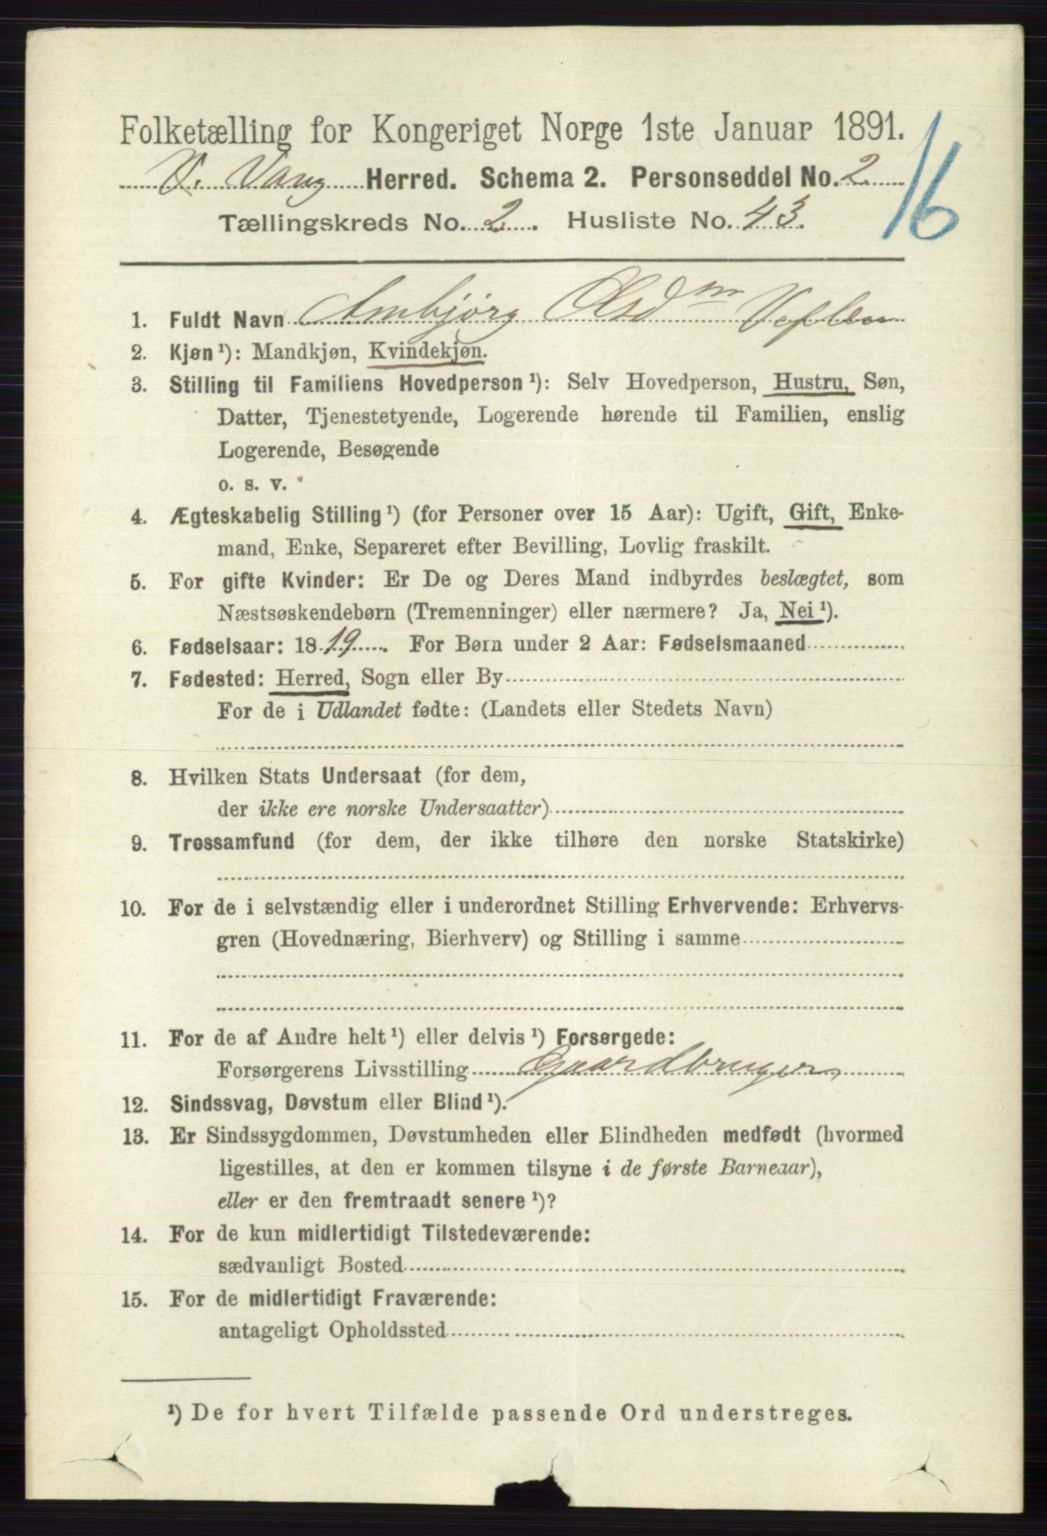 Folketælling for Kongeriget Norge 1ste Januar 1891.
V. Vang Herred. Schema 2. Personseddel No. 2
16
Tællingskreds No. 2. Husliste No. 43.
1. Fuldt Navn Ambjørg Olsd
2. Kjøn ¹): Mandkjøn, Kvindekjøn.
3. Stilling til Familiens Hovedperson ¹): Selv Hovedperson, Hustru, Søn,
Datter, Tjenestetyende, Logerende hørende til Familien, enslig
Logerende, Besøgende
o. s. v.
4. Ægteskabelig Stilling ¹) (for Personer over 15 Aar): Ugift, Gift, Enke-
mand, Enke, Separeret efter Bevilling, Lovlig fraskilt.
5. For gifte Kvinder: Er De og Deres Mand indbyrdes beslægtet, som
Næstsøskendebørn (Tremenninger) eller nærmere? Ja, Nei ¹).
6. Fødselsaar: 1819. For Børn under 2 Aar: Fødselsmaaned
7. Fødested: Herred, Sogn eller By
For de i Udlandet fødte: (Landets eller Stedets Navn)
8. Hvilken Stats Undersaat (for dem,
der ikke ere norske Undersaatter)
9. Trossamfund (for dem, der ikke tilhøre den norske Statskirke)
10. For de i selvstændig eller i underordnet Stilling Erhvervende: Erhvervs-
gren (Hovednæring, Bierhverv) og Stilling i samme
11. For de af Andre helt ¹) eller delvis ¹) Forsørgede:
Forsørgerens Livsstilling Gaardbruger
12. Sindssvag, Døvstum eller Blind ¹).
13. Er Sindssygdommen, Døvstumheden eller Blindheden medfødt (hvormed
ligestilles, at den er kommen tilsyne i de første Barneaar),
eller er den fremtraadt senere ¹)?
14. For de kun midlertidigt Tilstedeværende:
sædvanligt Bosted
15. For de midlertidigt Fraværende:
antageligt Opholdssted
¹) De for hvert Tilfælde passende Ord understreges.